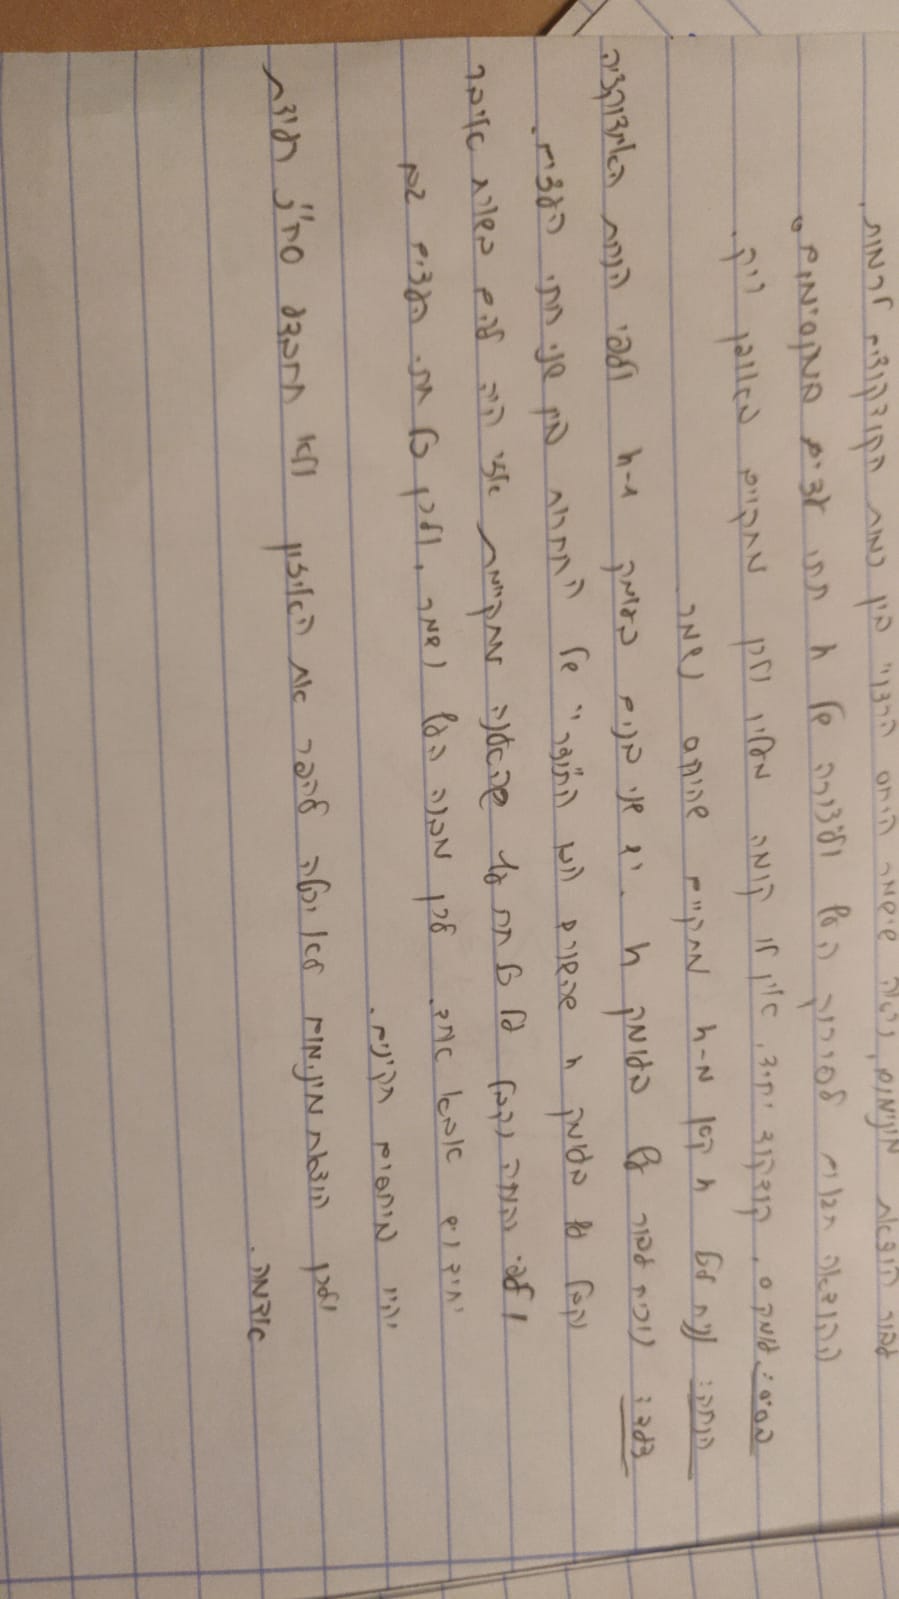 עבור הוצאת מינימום, נראה שישמר היחס הרצוי בין כמות הקודקודים לרמות.
ההוצאה תגרום לפירוק העץ וליצירה של h תתי עצים במקסימום.
בסיס: עומק 0, קודקוד יחיד, אין לו קומה מעליו ולכן מתקיים באופן ריק.
הנחה: נניח לכל h קטן מ-h מתקיים שהיחס נשמר
צעד: נוכיח עבור עץ בעומק h. יש שני בנים בעומק h-1 ולפי הנחת האינדוקציה
נקבל עץ בעומק h שהשורש הוא התוצר" של התחרות בין שני תתי העצים.
ולפי ההנחה נקבל על כל תת עץ שהטענה מתקיימת אזי היה להם בשורת איבר
יחיד אבא אחד. לכן מבנה העץ נשמר, ולכן כל תתי העצים גם
יהיו תקינים.
ולכן הוצאת מינימום לא יכולה להפר את האיזון ולא תתבצע סה"כ